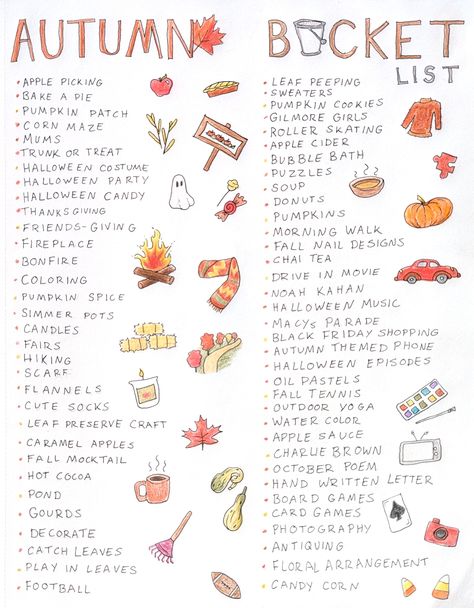 AUTUMN BUCKET
LIST
APPLE PICKING
BAKE A PIE
PUMPKIN PATCH
CORN MAZE
MUMS
TRUNK OR TREAT
HALLOWEEN COSTUME
HALLOWEEN PARTY
HALLOWEEN CANDY
THANKSGIVING
FRIENDS-GIVING
FIREPLACE
BONFIRE
COLORING
PUMPKIN SPICE
SIMMER POTS
CANDLES
FAIRS
HIKING
SCARF
FLANNELS
CUTE SOCKS
LEAF PRESERVE CRAFT
CARAMEL APPLES
FALL MOCKTAIL
HOT COCOA
POND
GOURDS
DECORATE
CATCH LEAVES
PLAY IN LEAVES
FOOTBALL
LEAF PEEPING
SWEATERS
PUMPKIN COOKIES
GILMORE GIRLS
ROLLER SKATING
APPLE CIDER
BUBBLE BATH
PUZZLES
SOUP
DONUTS
PUMPKINS
MORNING WALK
FALL NAIL DESIGNS
CHAI TEA
DRIVE IN MOVIE
NOAH KAHAN
HALLOWEEN MUSIC
MACYS PARADE
BLACK FRIDAY SHOPPING
AUTUMN THEMED PHONE
HALLOWEEN EPISODES
OIL PASTELS
FALL TENNIS
OUTDOOR YOGA
WATER COLOR
APPLE SAUCE
CHARLIE BROWN
OCTOBER POEM
HAND WRITTEN LETTER
BOARD GAMES
CARD GAMES
PHOTOGRAPHY
ANTIQUING
FLORAL ARRANGEMENT
CANDY CORN